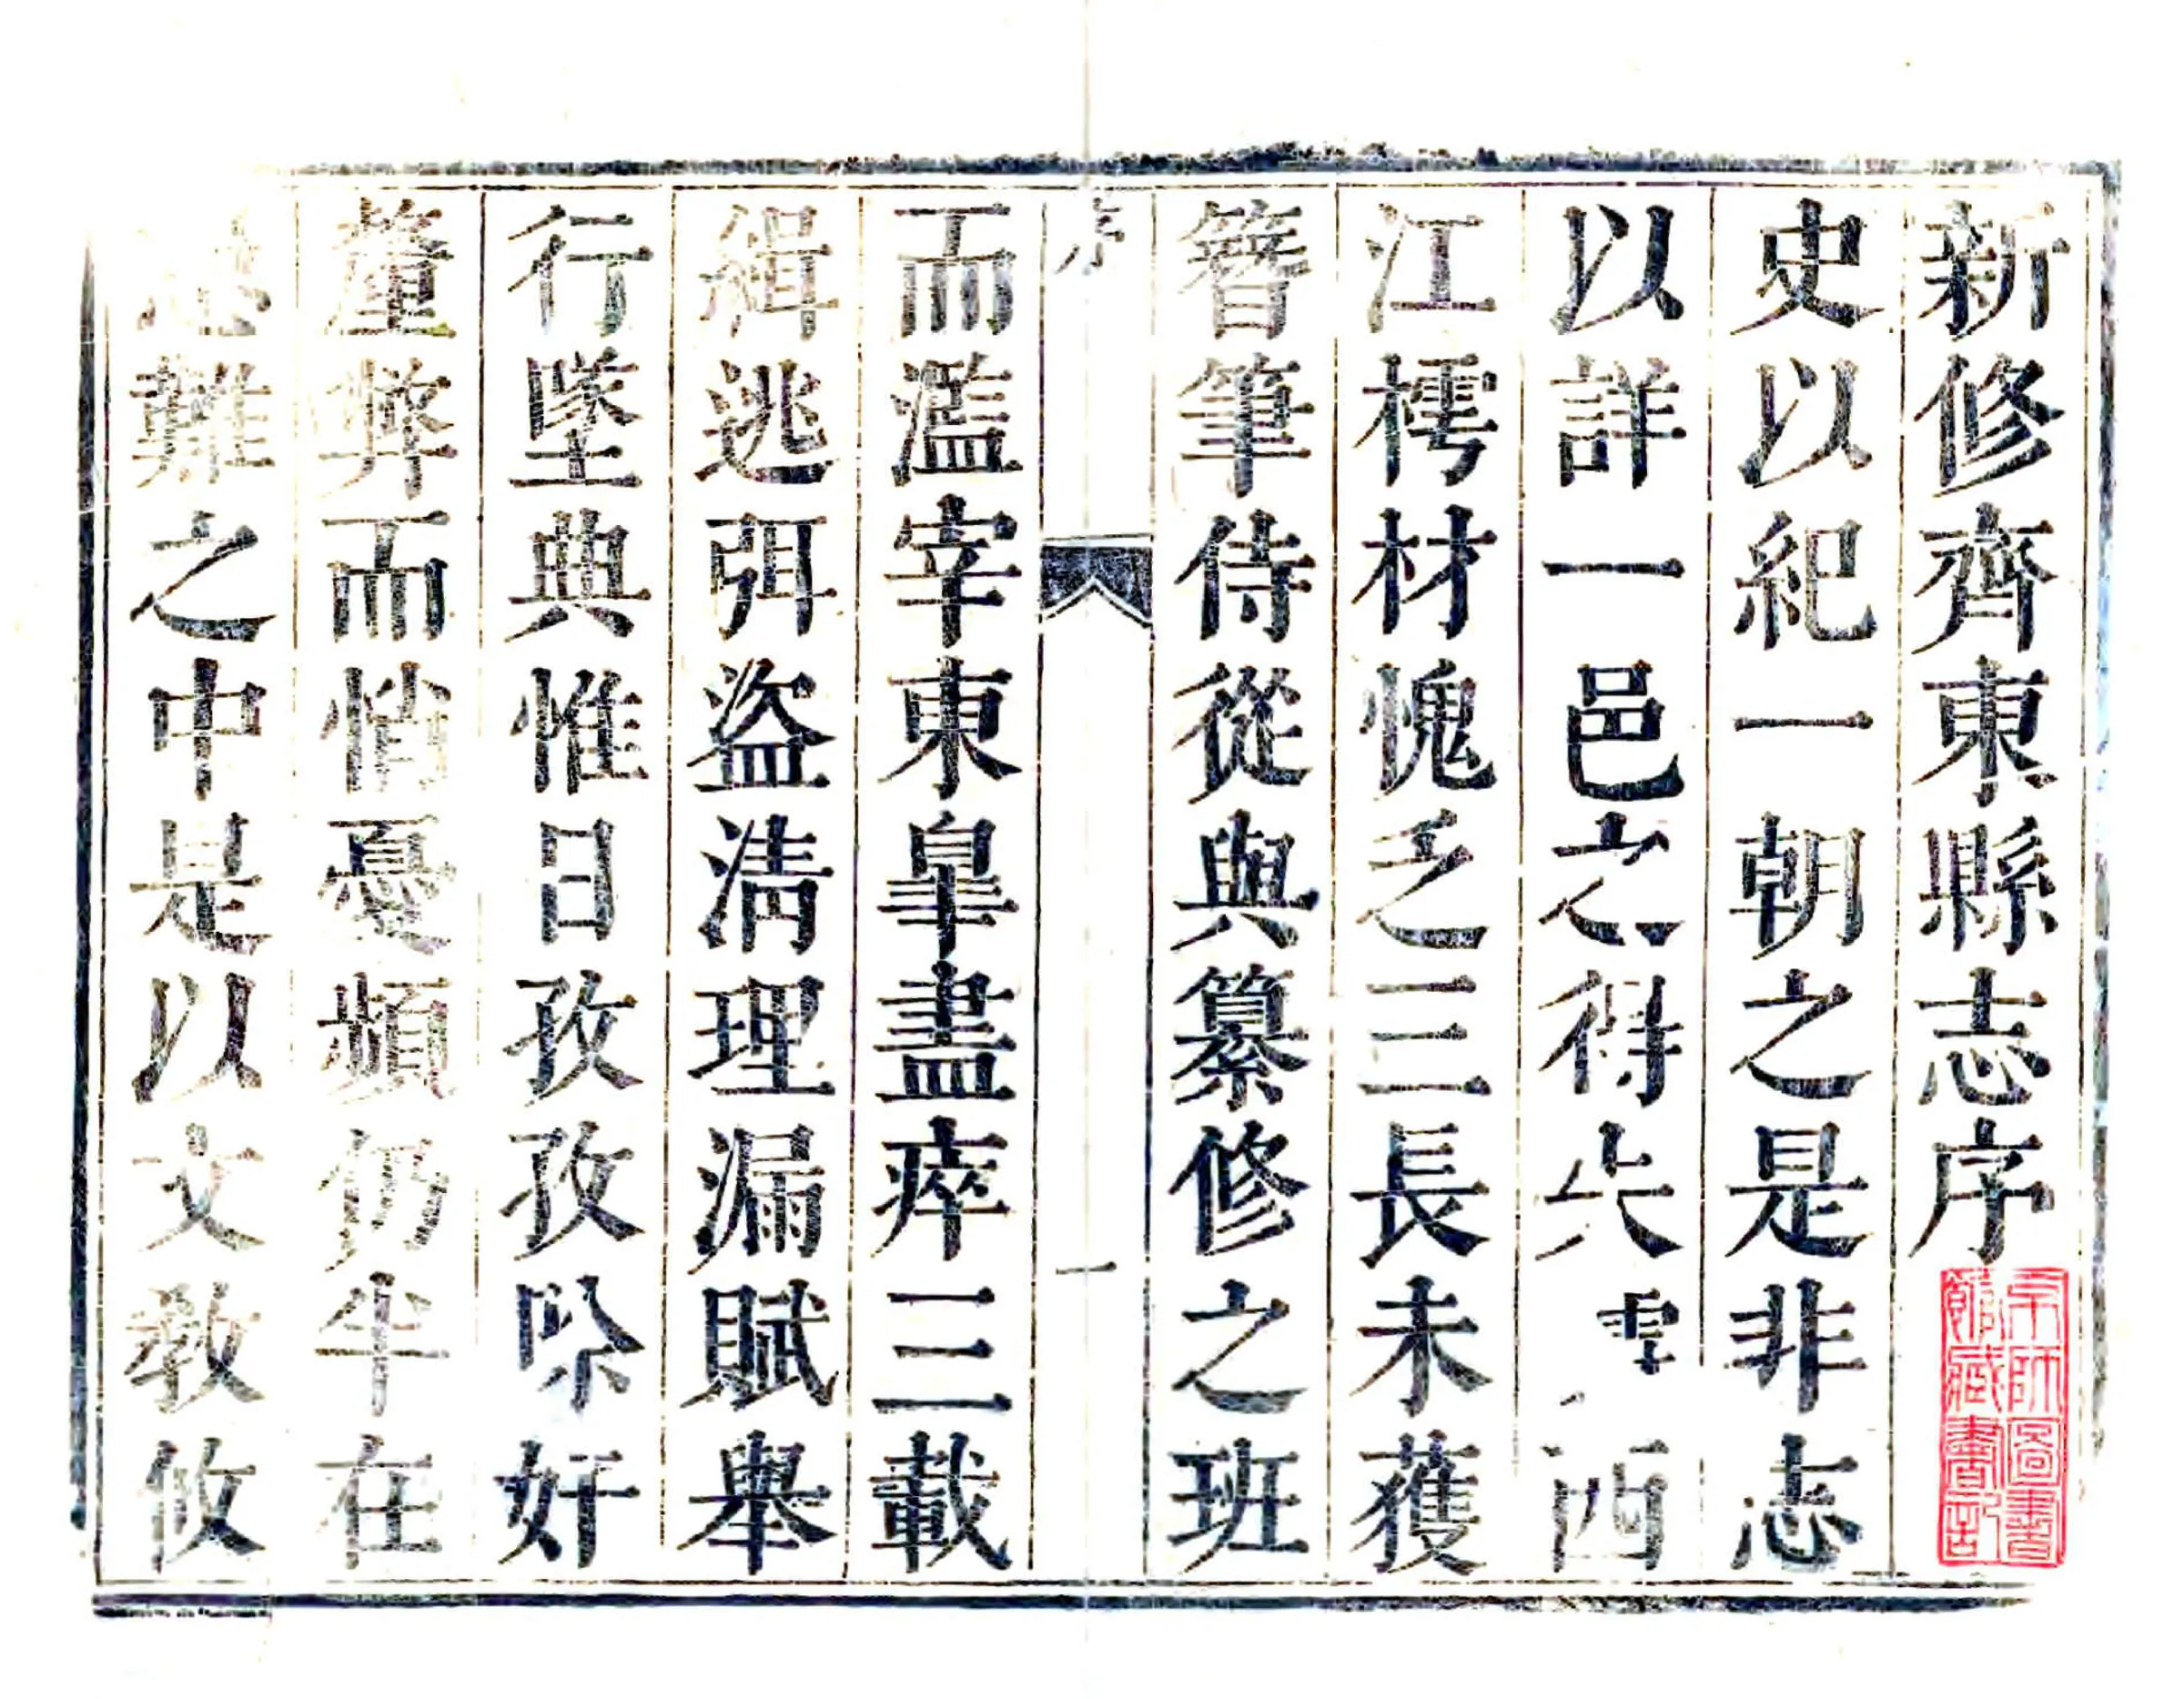 新修齊東縣志序
京師圖書
館藏書記
史以紀一朝之是非志
以詳一邑之得失雲西
江樗材愧乏三長未獲
簪筆侍從與纂修之班
序
一
而濫宰東皐盡瘁三載
緝逃弭盜淸理漏賦舉
行墜典惟日孜孜緊奸
釐弊而悄憂頻仍坐在
難之中是以文敎攸